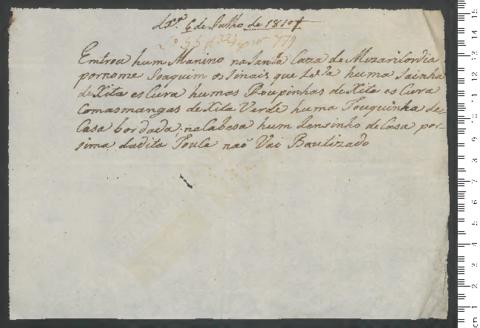 Lxª 6 de Julho de 1810
Entrou hum Manino na Santa Caza de Mizarilordia
por nome Joaquim os Sinais que Leva huma Sainha
de Xita es Cura humas Roupinhas de Xita es Cura
Comas mangas de Xita Verde huma Touquinha de
Casa bordada na Cabesa hum Lensinho de Casa por
sima da dita Touca não Vai Bautizado